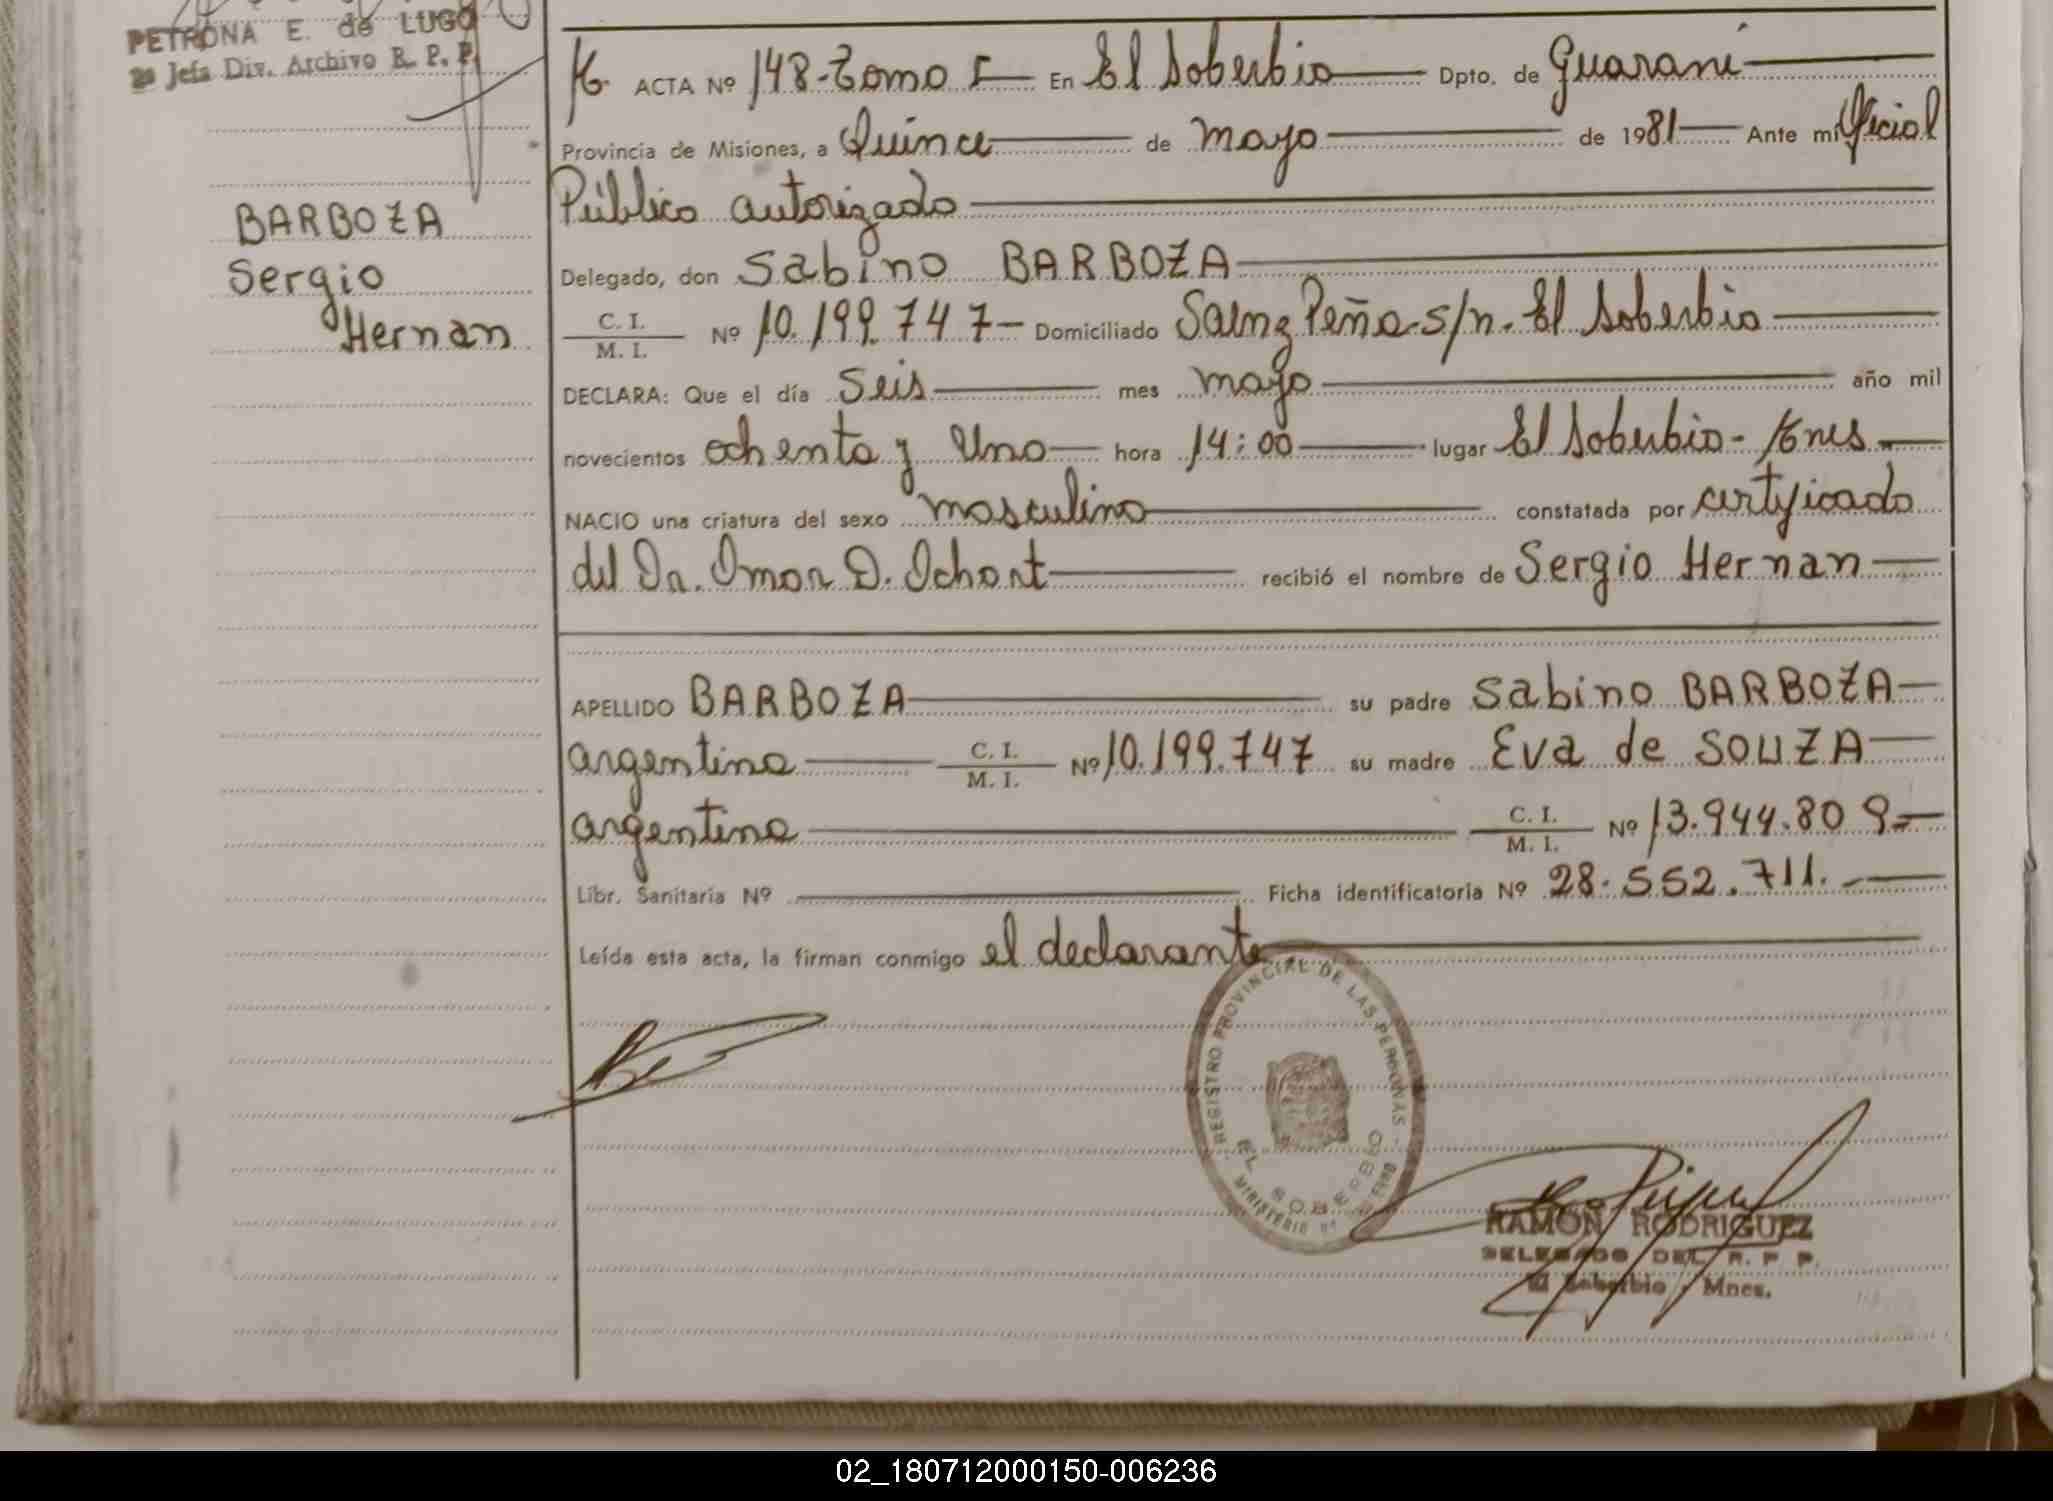 PETRONA E. de LUGO
2a Jefa Div. Archivo R. P. P.
BARBOZA
Sergio
Hernan
ACTA Nº 148-Tomo I En El Soberbio Dpto. de Guaraní
Provincia de Misiones, a Quince de mayo de 1981 Ante mi Oficial
Público autorizado
Delegado, don Sabino BARBOZA
C. I.
M. I. Nº 10.199.747 Domiciliado Saenz Peña s/n. El Soberbio
DECLARA: Que el día Seis mes mayo año mil
novecientos ochenta y Uno hora 14:00 lugar El Soberbio-
NACIO una criatura del sexo masculino constatada por certificado
del Dr. Omar D. recibió el nombre de Sergio Hernan
APELLIDO BARBOZA su padre Sabino BARBOZA
argentina C. I.
M. I. Nº 10.199.747 su madre Eva de SOUZA
argentina C. I.
M. I. Nº 13.944.809
Libr. Sanitaria Nº Ficha identificatoria Nº 28.552.711.
Leída esta acta, la firman conmigo el declarante
REGISTRO PROVINCIAL DE LAS PERSONAS
EL SOBERBIO
MINISTERIO DE
RAMON RODRIGUEZ
DELEGADO DEL R. P. P.
El Soberbio - Mnes.
02_180712000150-006236